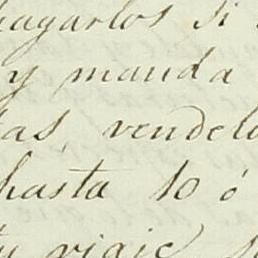 hagarlos si
y manda
las, vendelo
hasta 10 ó
tu viaje